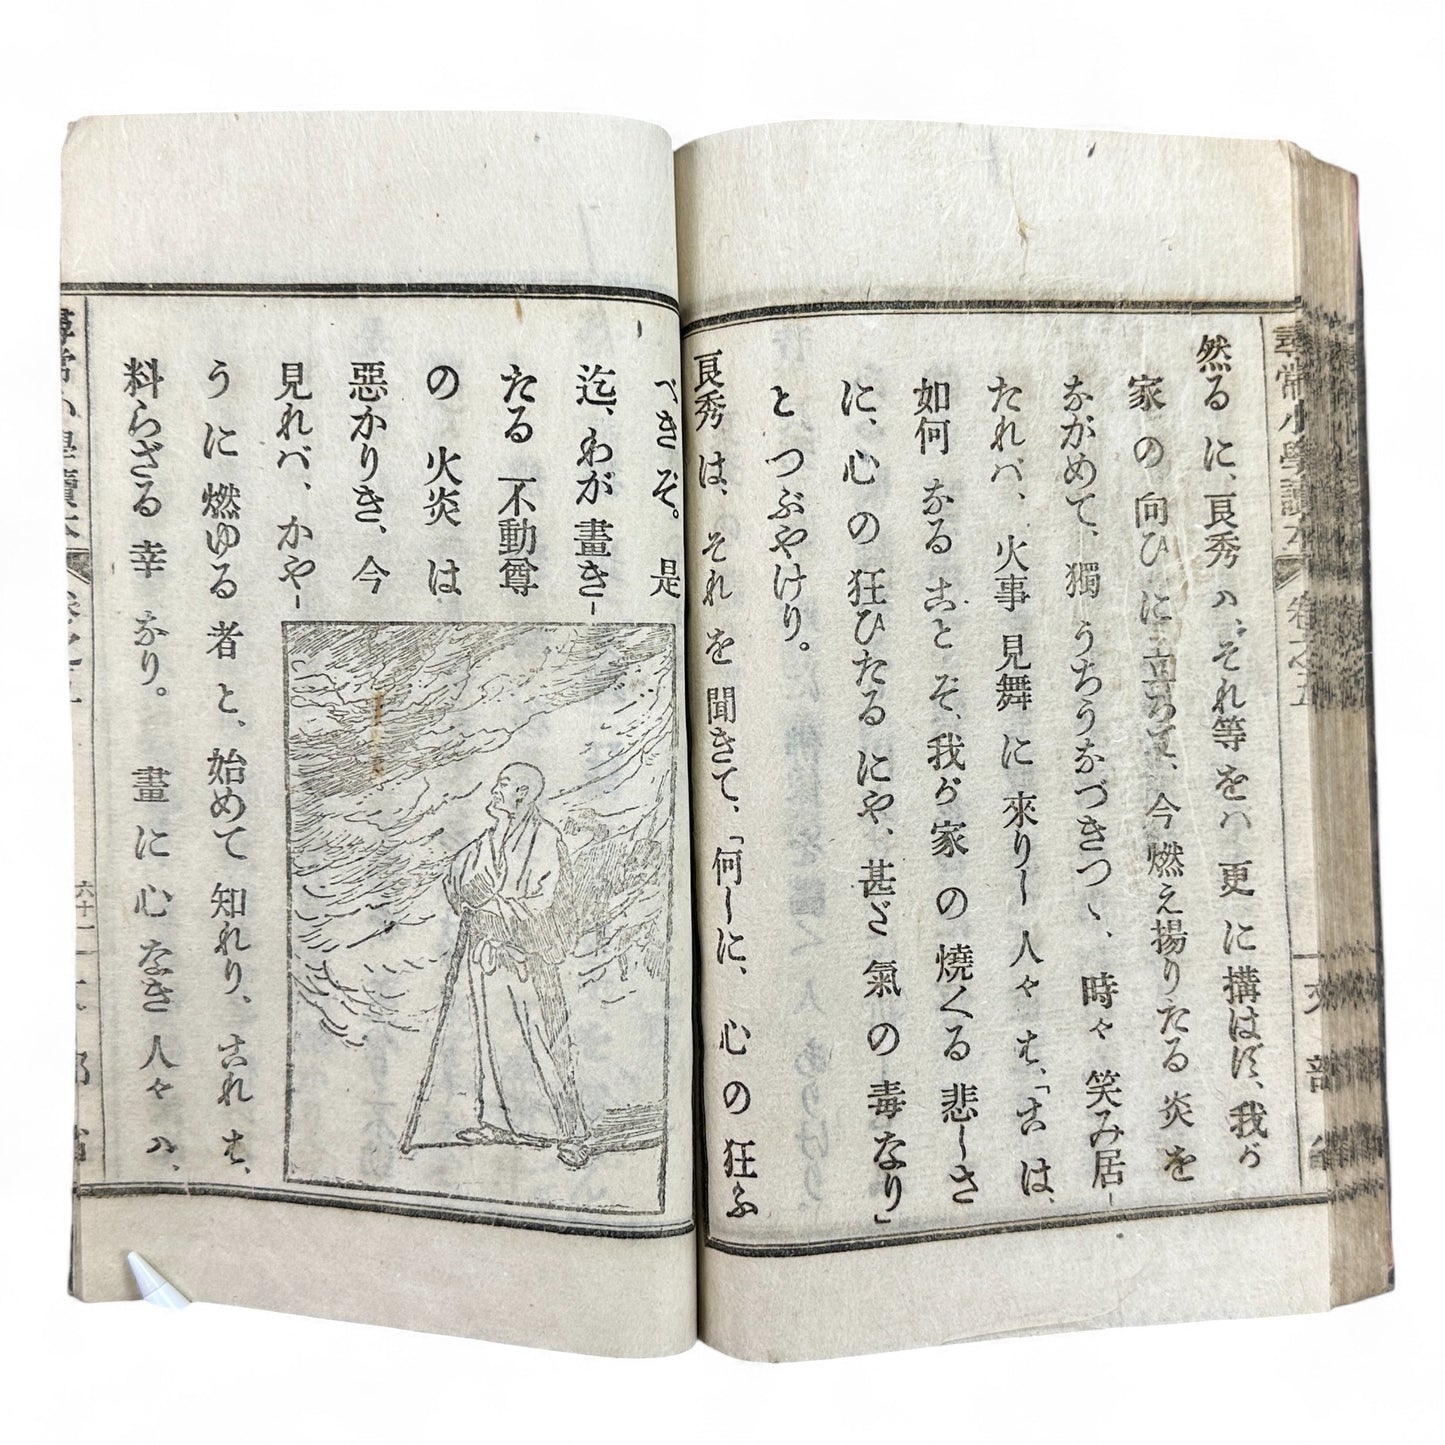 然るに、良秀ハ、それ等をバ更に搆はず、我が
家の向ひに立ちて、今燃え揚りたる炎を
ながめて、獨うちうなづきつヽ、時々笑み居-
たれバ、火事見舞に來りし人々も、「こは、
如何なることぞ、我が家の燒くる悲しさ
に、心の狂ひたるにや、甚ざ氣の毒なり」
とつぶやけり。
良秀は、それを聞きて、「何しに、心の狂ふ
べきぞ。是
迄、わが畫き-
たる不動尊
の火炎は
惡かりき、今
見れバ、かや-
うに燃ゆる者と、始めて知れり、これも、
料らざる幸なり。畫に心なき人々ハ、
尋常小學讀本
卷之五
六十一
文部省
尋常小學讀本
卷之五
文部省